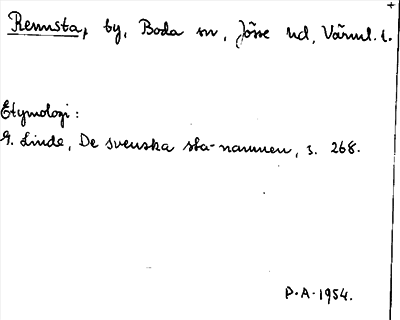 Rennsta, by, Boda sn, Jösse hd, Värml. l.
Etymologi:
G. Linde, De svenska sta-namnen, s. 268.
P.A. 1954.